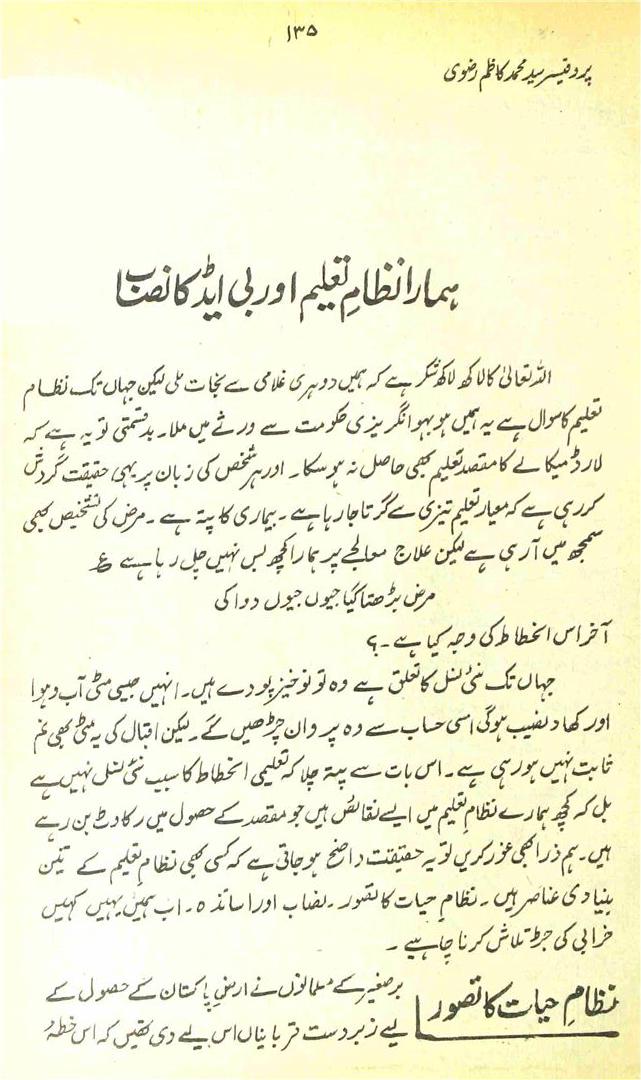 ۱۳۵
پروفیسر سید محمد کاظم رضوی
ہمارا نظامِ تعلیم اور بی ایڈ کا نصاب
اللہ تعالیٰ کا لاکھ لاکھ شکر ہے کہ ہمیں دوہری غلامی سے نجات ملی لیکن جہاں تک نظام
تعلیم کا سوال ہے یہ ہمیں ہو بہو انگریزی حکومت سے ورثے میں ملا۔ بدقسمتی تو یہ ہے کہ
لارڈ میکالے کا مقصد تعلیم بھی حاصل نہ ہو سکا۔ اور ہر شخص کی زبان پر یہی حقیقت گردش
کر رہی ہے کہ معیار تعلیم تیزی سے گرتا جا رہا ہے۔ بیماری کا پتہ ہے۔ مرض کی تشخیص بھی
سمجھ میں آ رہی ہے لیکن علاج معالجے پر ہمارا کچھ بس نہیں چل رہا ہے ؏
مرض بڑھتا گیا جیوں جیوں دوا کی
آخر اس انحطاط کی وجہ کیا ہے۔؟
جہاں تک نئی نسل کا تعلق ہے وہ تو نوخیز پودے ہیں۔ انہیں جیسی مٹی آب و ہوا
اور کھاد نصیب ہوگی اسی حساب سے وہ پروان چڑھیں گے۔ لیکن اقبال کی یہ مٹی بھی نم
ثابت نہیں ہو رہی ہے۔ اس بات سے پتہ چلا کہ تعلیمی انحطاط کا سبب نئی نسل نہیں ہے
بل کہ کچھ ہمارے نظام تعلیم میں ایسے نقائص ہیں جو مقصد کے حصول میں رکاوٹ بن رہے
ہیں۔ ہم ذرا بھی غور کریں تو یہ حقیقت واضح ہو جاتی ہے کہ کسی بھی نظام تعلیم کے تین
بنیادی عناصر ہیں۔ نظام حیات کا تصور۔ نصاب اور اساتذہ۔ اب ہمیں یہیں کہیں
خرابی کی جڑ تلاش کرنا چاہیے۔
نظامِ حیات کا تصور
برصغیر کے مسلمانوں نے ارضِ پاکستان کے حصول کے
لیے زبردست قربانیاں اس لیے دی تھیں کہ اس خطۂ